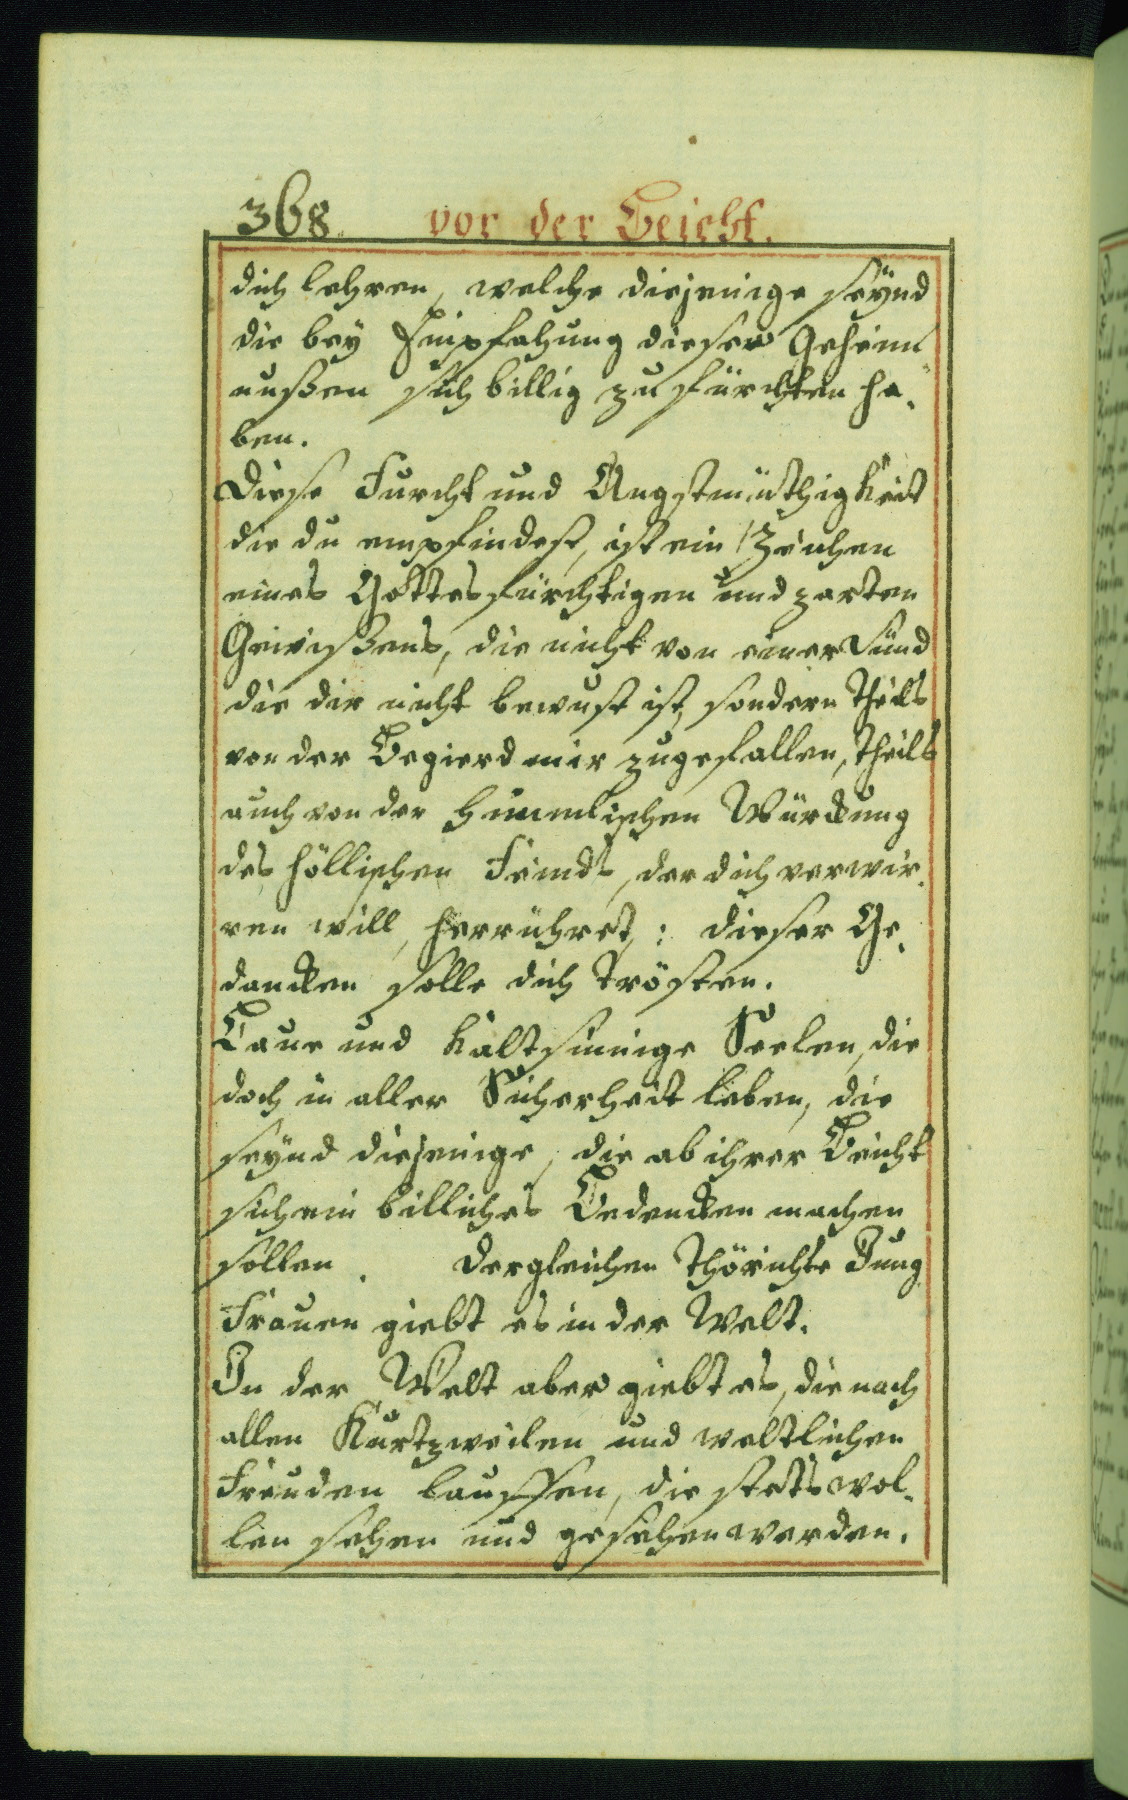 368. vor der Beicht.
dich lehren, welche diejenige seÿnd
die beÿ Empfahung dieser Geheim
nußen sich billig zu fürchten ha,
ben.
Diese Furcht und Angstmüthigkeit
die du empfindest, ist ein Zeichen
eines Gottesfürchtigen und zarten
Gewißens, die nicht von einer Sünd
die dir nicht bewust ist, sondern theils
von der Begierd mir zugefallen, theils
auch von der heimmlischen Würckung
des höllischen Feinds, der dich verwir,
ren will, herrühret,: dieser Ge,
dancken solle dich trösten.
Laue und kaltsinnige Seelen, die
doch in aller Sicherheit leben, die
seÿnd diejenige, die ab ihrer Beicht
sich ein billiches Bedencken machen
sollen. Dergleichen thörichte Jung
Frauen giebt es in der Welt.
In der Welt aber giebt es, die nach
allen Kurtzweilen und weltlichen
Freuden lauffen, die stets wol,
len sehen und gesehen werden.